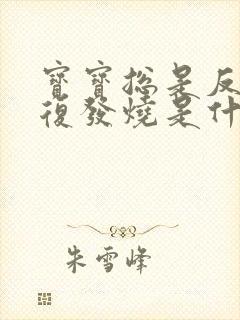 寶寶總是反
復發燒是什
朱雪峰